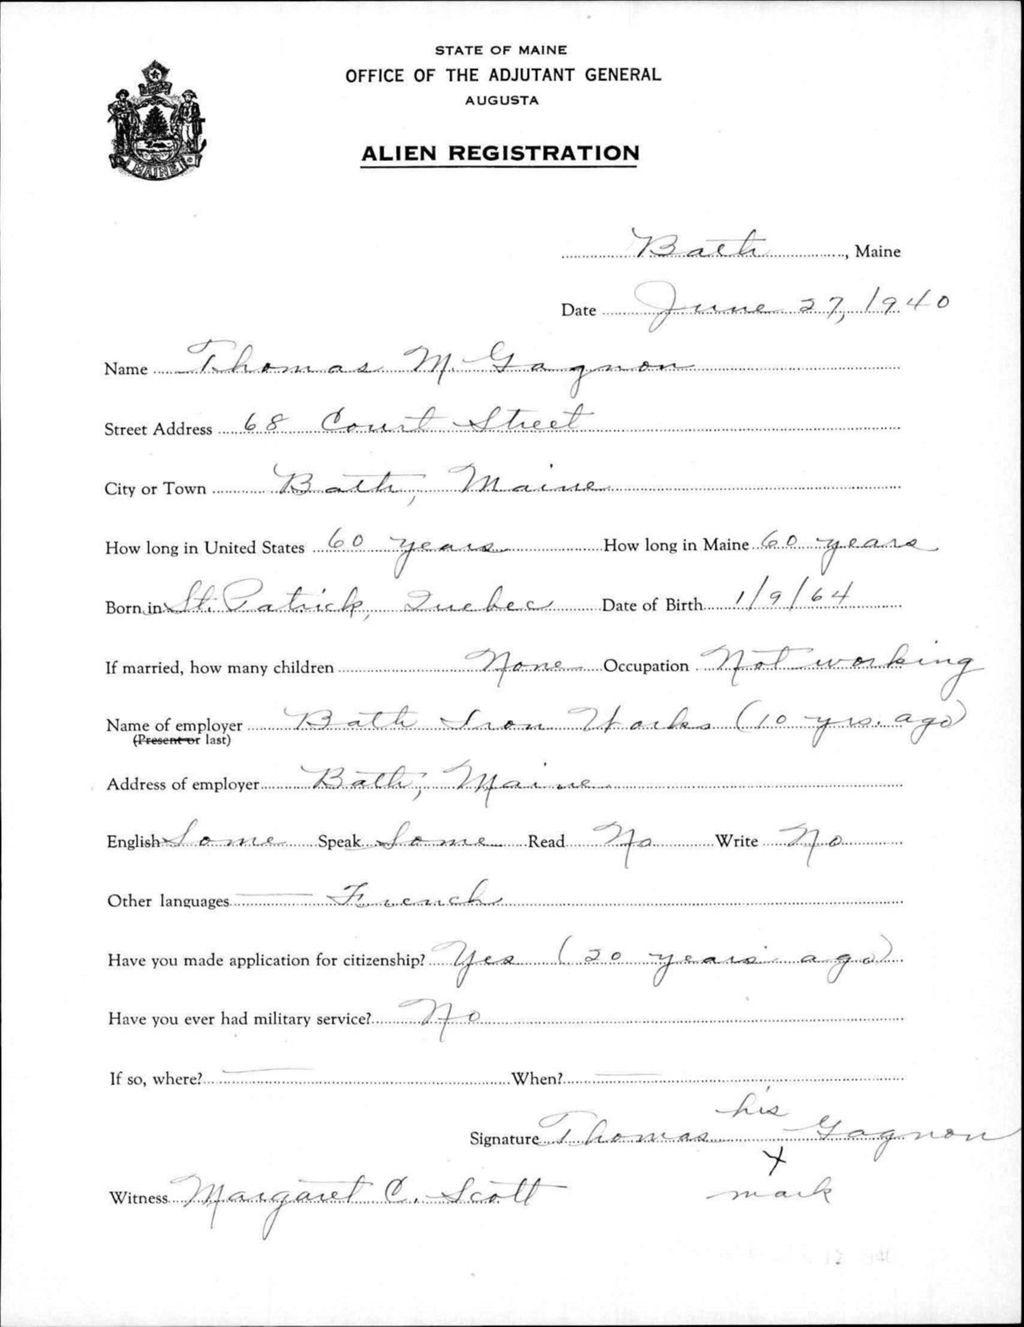 STATE OF MAINE
OFFICE OF THE ADJUTANT GENERAL
AUGUSTA
ALIEN REGISTRATION
MAINE
Bath, Maine
Date June 27, 1940
Name Thomas M. Gagnon
Street Address 68 Court Street
City or Town Bath, Maine
How long in United States 60 years How long in Maine 60 years
Born in St. Patrick, Quebec Date of Birth 1/9/64
If married, how many children None Occupation Not working
Name of employer Bath Iron Works (10 yrs. ago)
(Present or last)
Address of employer Bath, Maine
English Some Speak Some Read No Write No
Other languages French
Have you made application for citizenship? Yes (20 years ago)
Have you ever had military service? No
If so, where? When?
his
Signature Thomas Gagnon
X
Witness Margaret C. Scott mark